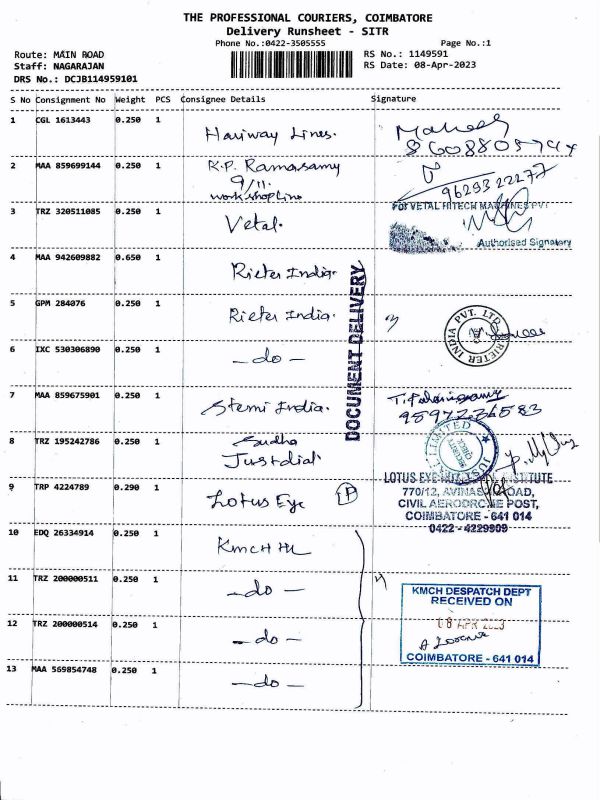 THE PROFESSIONAL COURIERS, COIMBATORE
Delivery Runsheet - SITR
Phone No.:0422-3505555 Page No.:1
Route: MAIN ROAD RS No.: 1149591
Staff: NAGARAJAN RS Date: 08-Apr-2023
DRS No.: DCJB114959101
S No Consignment No Weight PCS Consignee Details Signature
1 CGL 1613443 0.250 1 Hariway Lines.
2 MAA 859699144 0.250 1 R.P. Ramasamy
9/11.
workshop Line
9629322277
3 TRZ 320511085 0.250 1 Vetal.
For VETAL HITECH MACHINES PVT
Authorised Signatory
4 MAA 942609882 0.650 1 Rieter India.
DOCUMENT DELIVERY
5 GPM 284076 0.250 1 Rieter India.
RIETER INDIA PVT. LTD.
6 IXC 530306890 0.250 1 - do -
7 MAA 859675901 0.250 1 Stemi India.
8 TRZ 195242786 0.250 1 Sudha
Justdial
LIMITED
9 TRP 4224789 0.290 1 Lotus Eye P
LOTUS EYE INSTITUTE
770/12, AVINASI ROAD,
CIVIL AERODROME POST,
COIMBATORE - 641 014
0422 - 4229909
10 EDQ 26334914 0.250 1 KMCH
11 TRZ 200000511 0.250 1 - do -
12 TRZ 200000514 0.250 1 - do -
13 MAA 569854748 0.250 1 - do -
KMCH DESPATCH DEPT
RECEIVED ON
08 APR 2023
COIMBATORE - 641 014